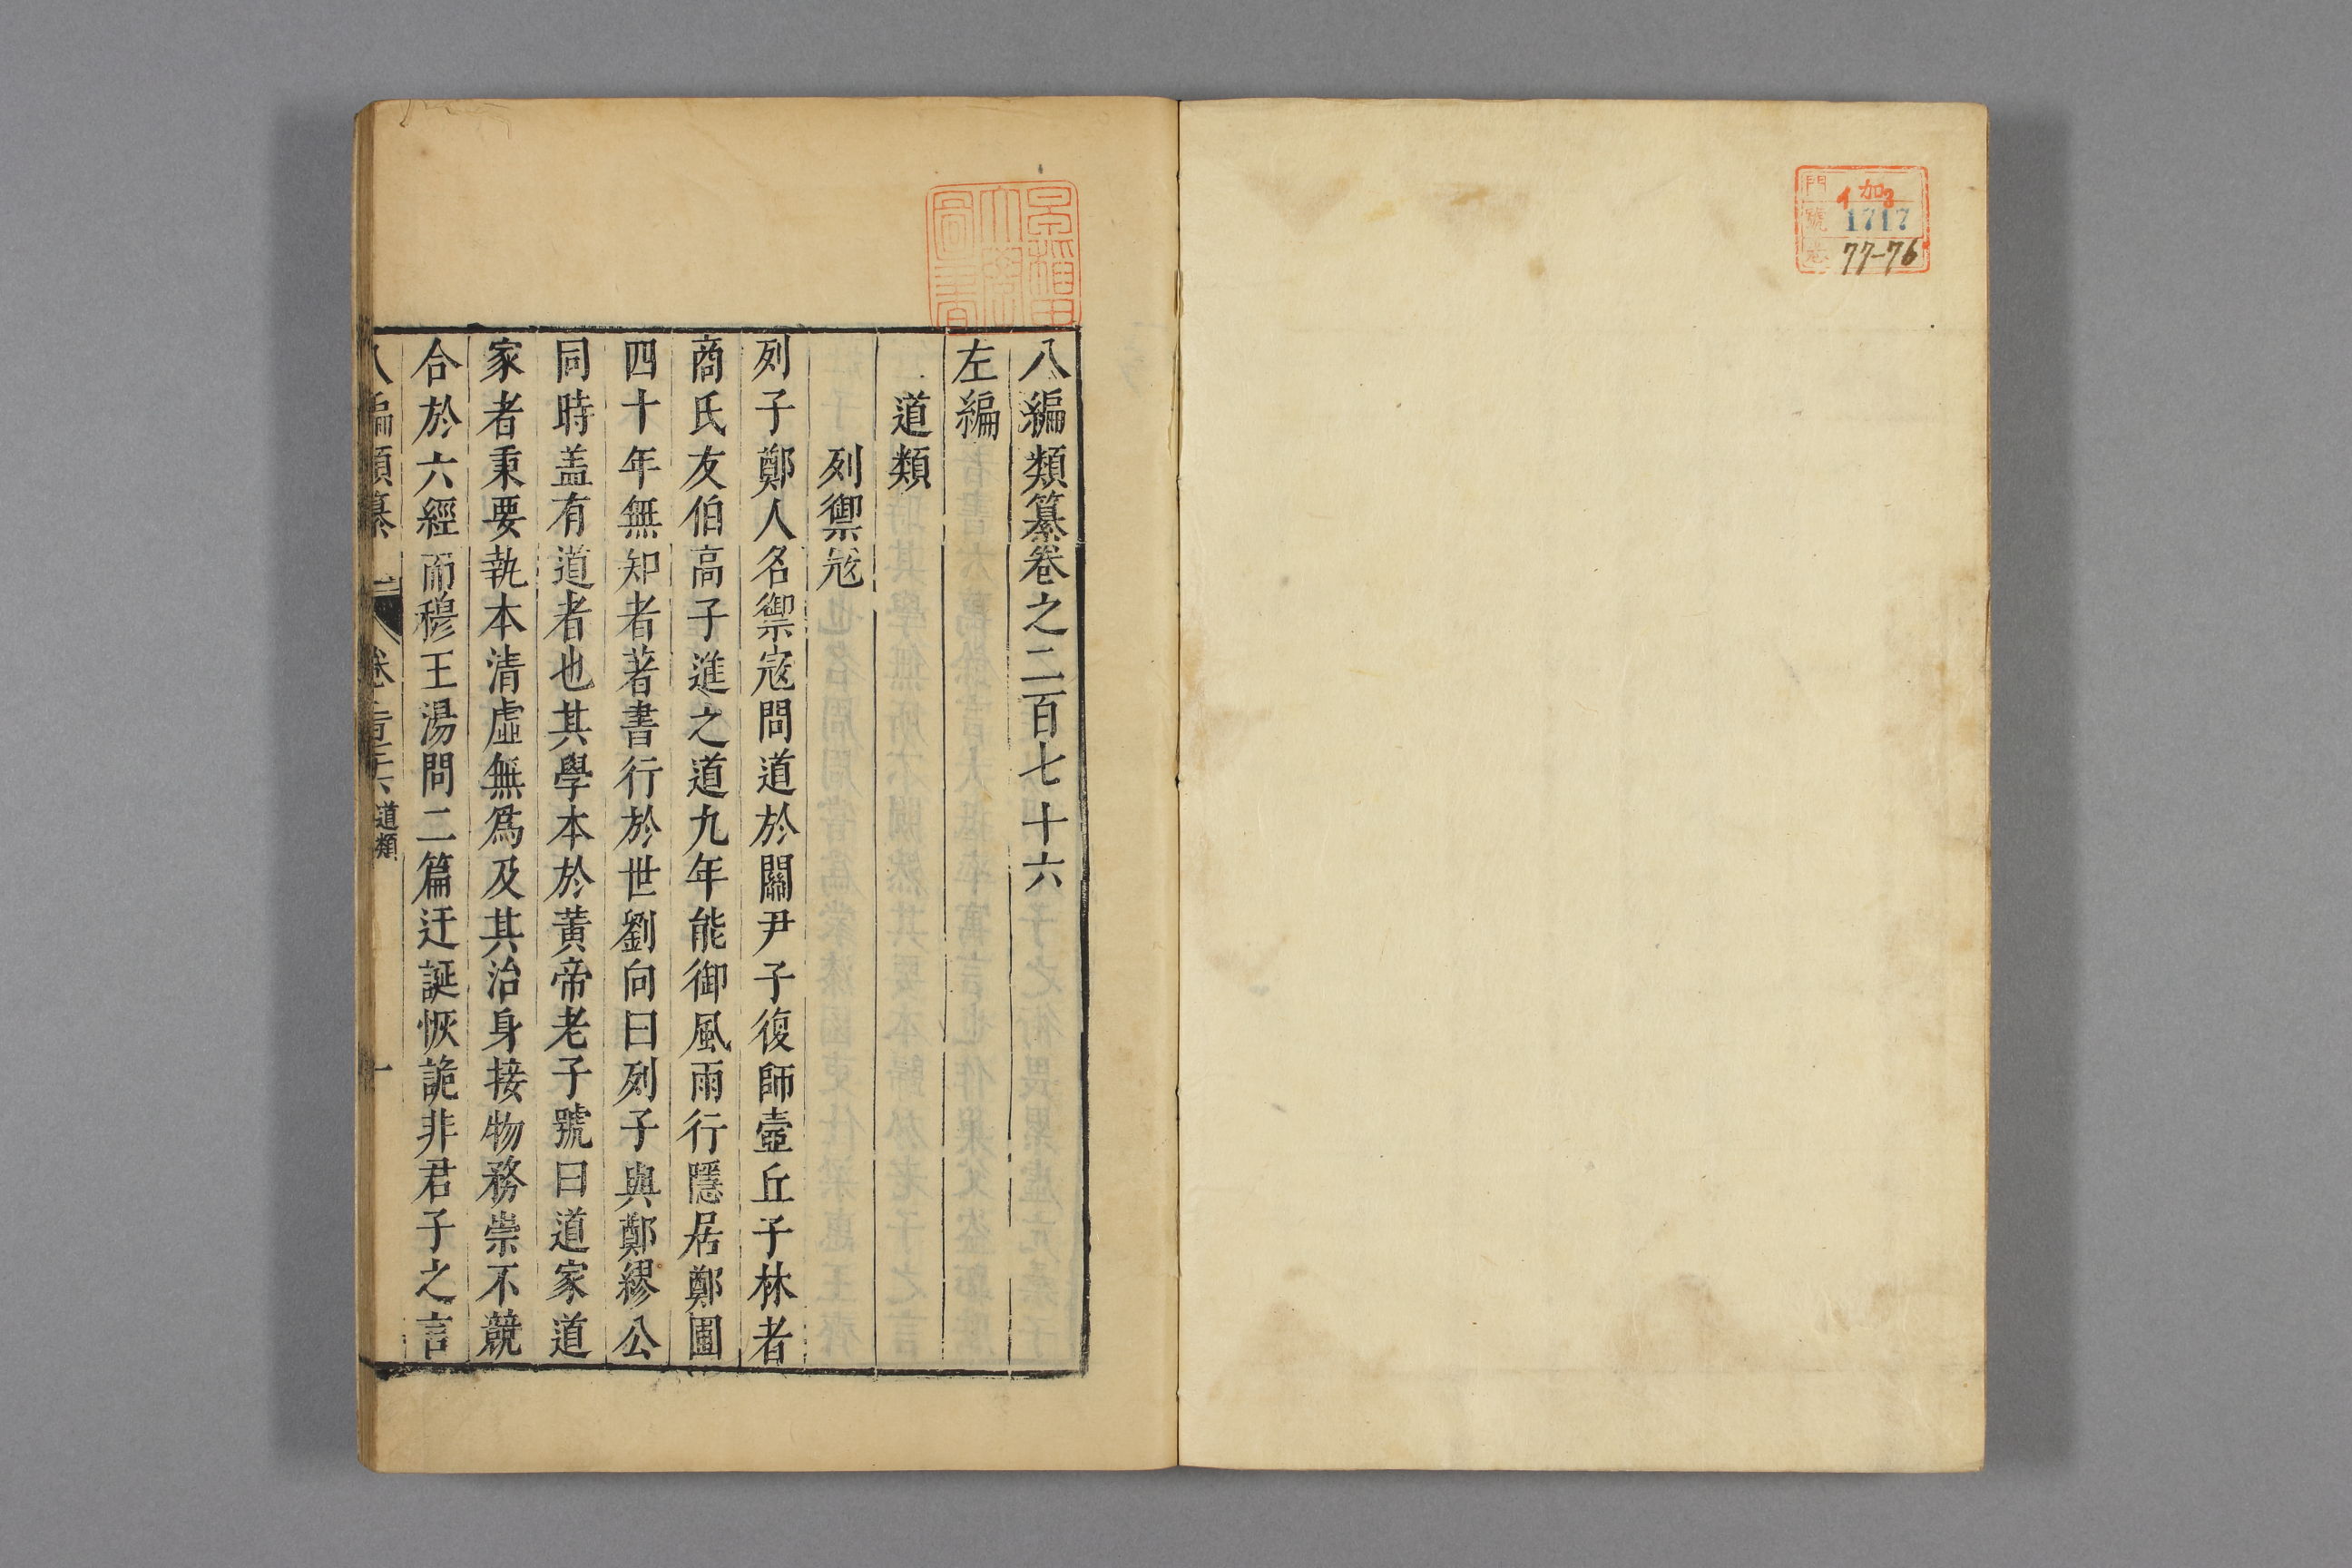 門 イ加3
號 1717
卷 77-76
早稲田
大學
圖書
八編類纂卷之二百七十六
左編
道類
列禦寇
列子鄭人名禦寇問道於關尹子復師壺丘子林者
商氏友伯高子進之道九年能御風雨行隱居鄭圃
四十年無知者著書行於世劉向曰列子與鄭繆公
同時盖有道者也其學本於黃帝老子號曰道家道
家者秉要執本清虛無爲及其治身接物務崇不競
合於六經而穆王湯問二篇迂誕恢詭非君子之言
八編類纂 卷二百七十六 道類 一